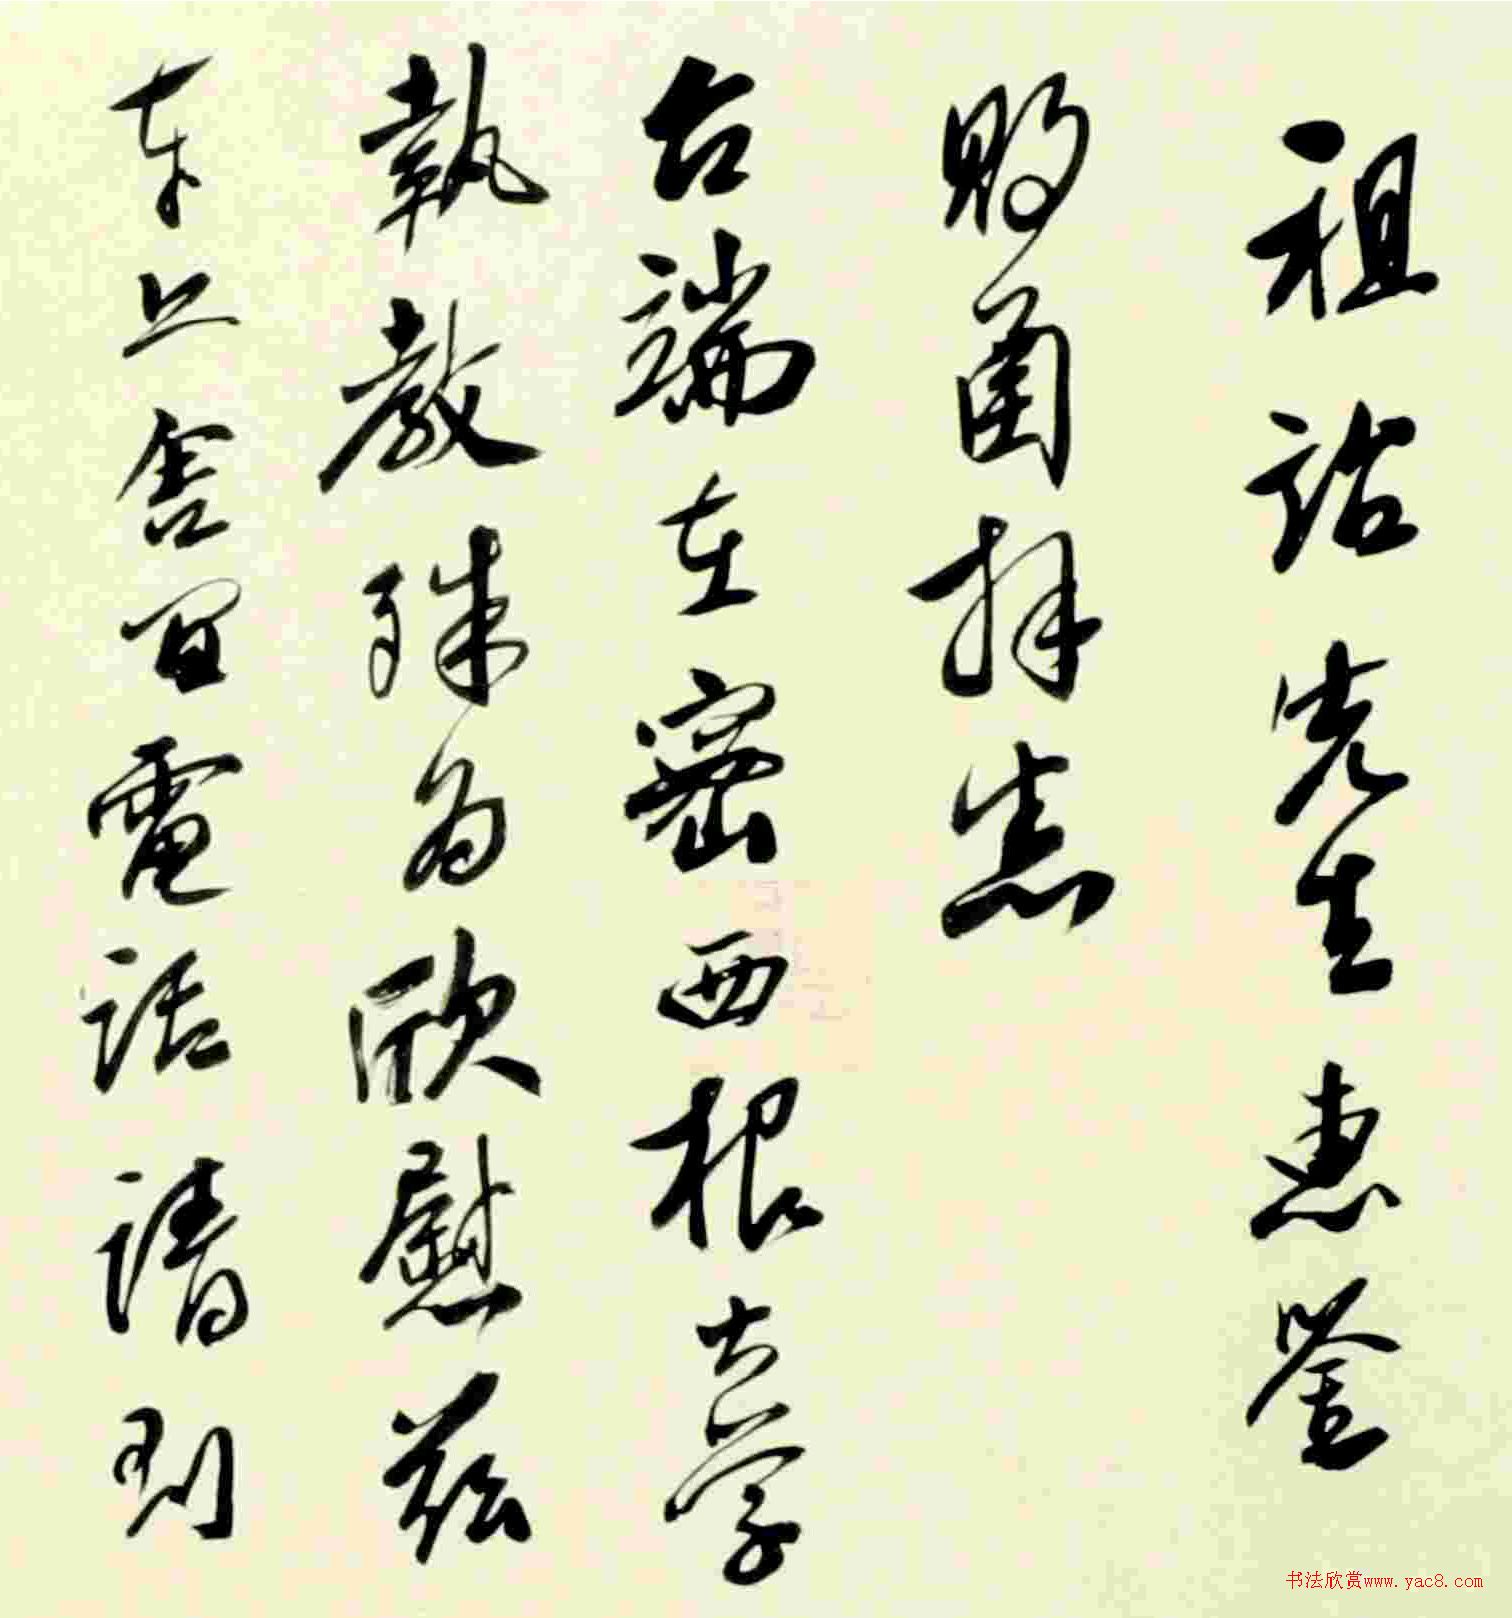 祖詒先生惠鉴
赐函拜悉
台端在密西根大学
執教殊为欣慰兹
奉上舍间電話請到
书法欣赏www.yac8.com